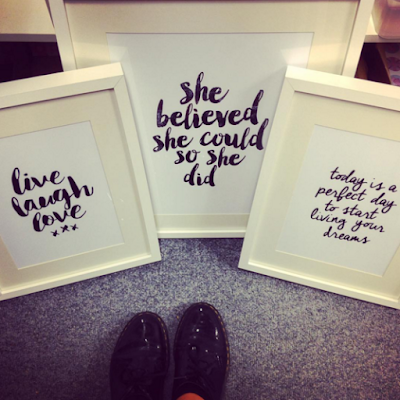 live
laugh
love
xxx
she
believed
she could
so she
did
today is a
perfect day
to start
living your
dreams